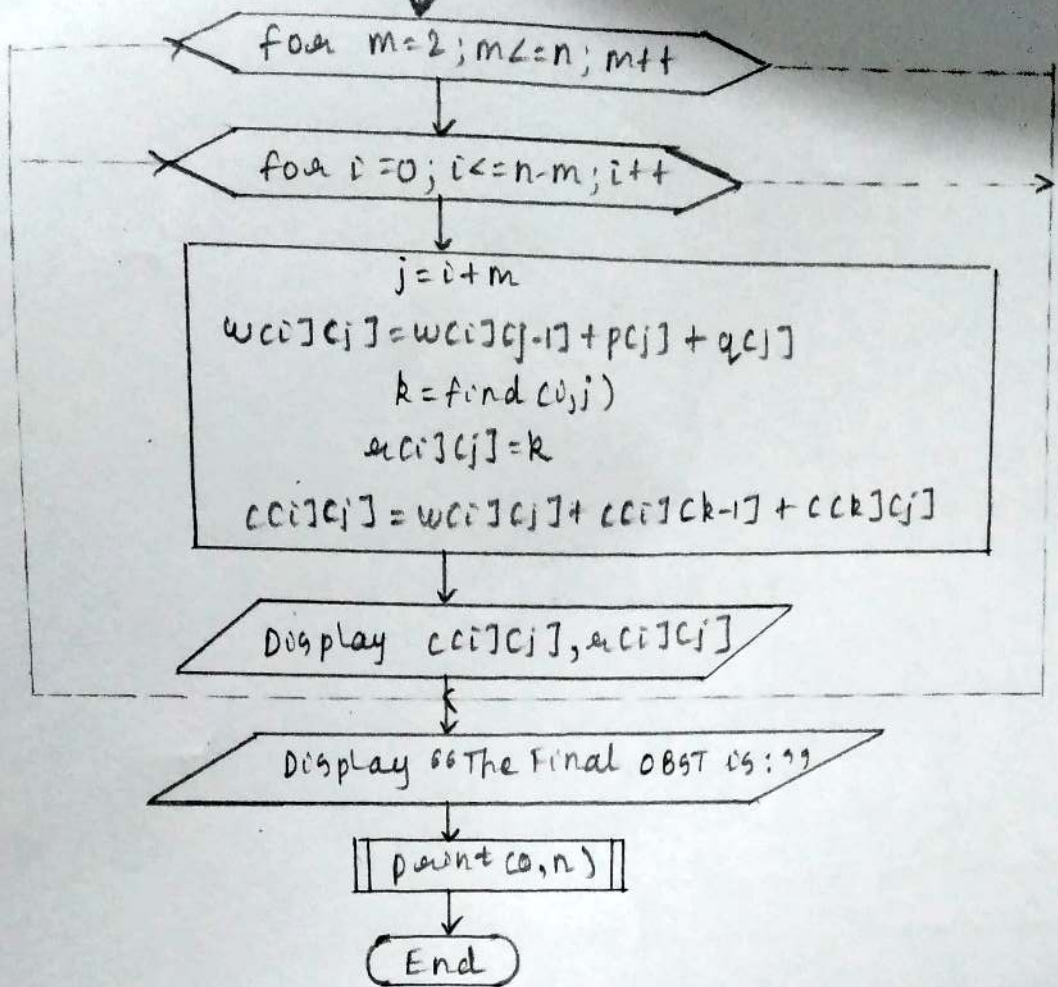 for m=2; m<=n; m++
for i=0; i<=n-m; i++
j=i+m
w[i][j]=w[i][j-1]+p[j]+q[j]
k=find(i,j)
r[i][j]=k
c[i][j]=w[i][j]+c[i][k-1]+c[k][j]
Display c[i][j], r[i][j]
Display “The Final OBST is:”
print(0,n)
End